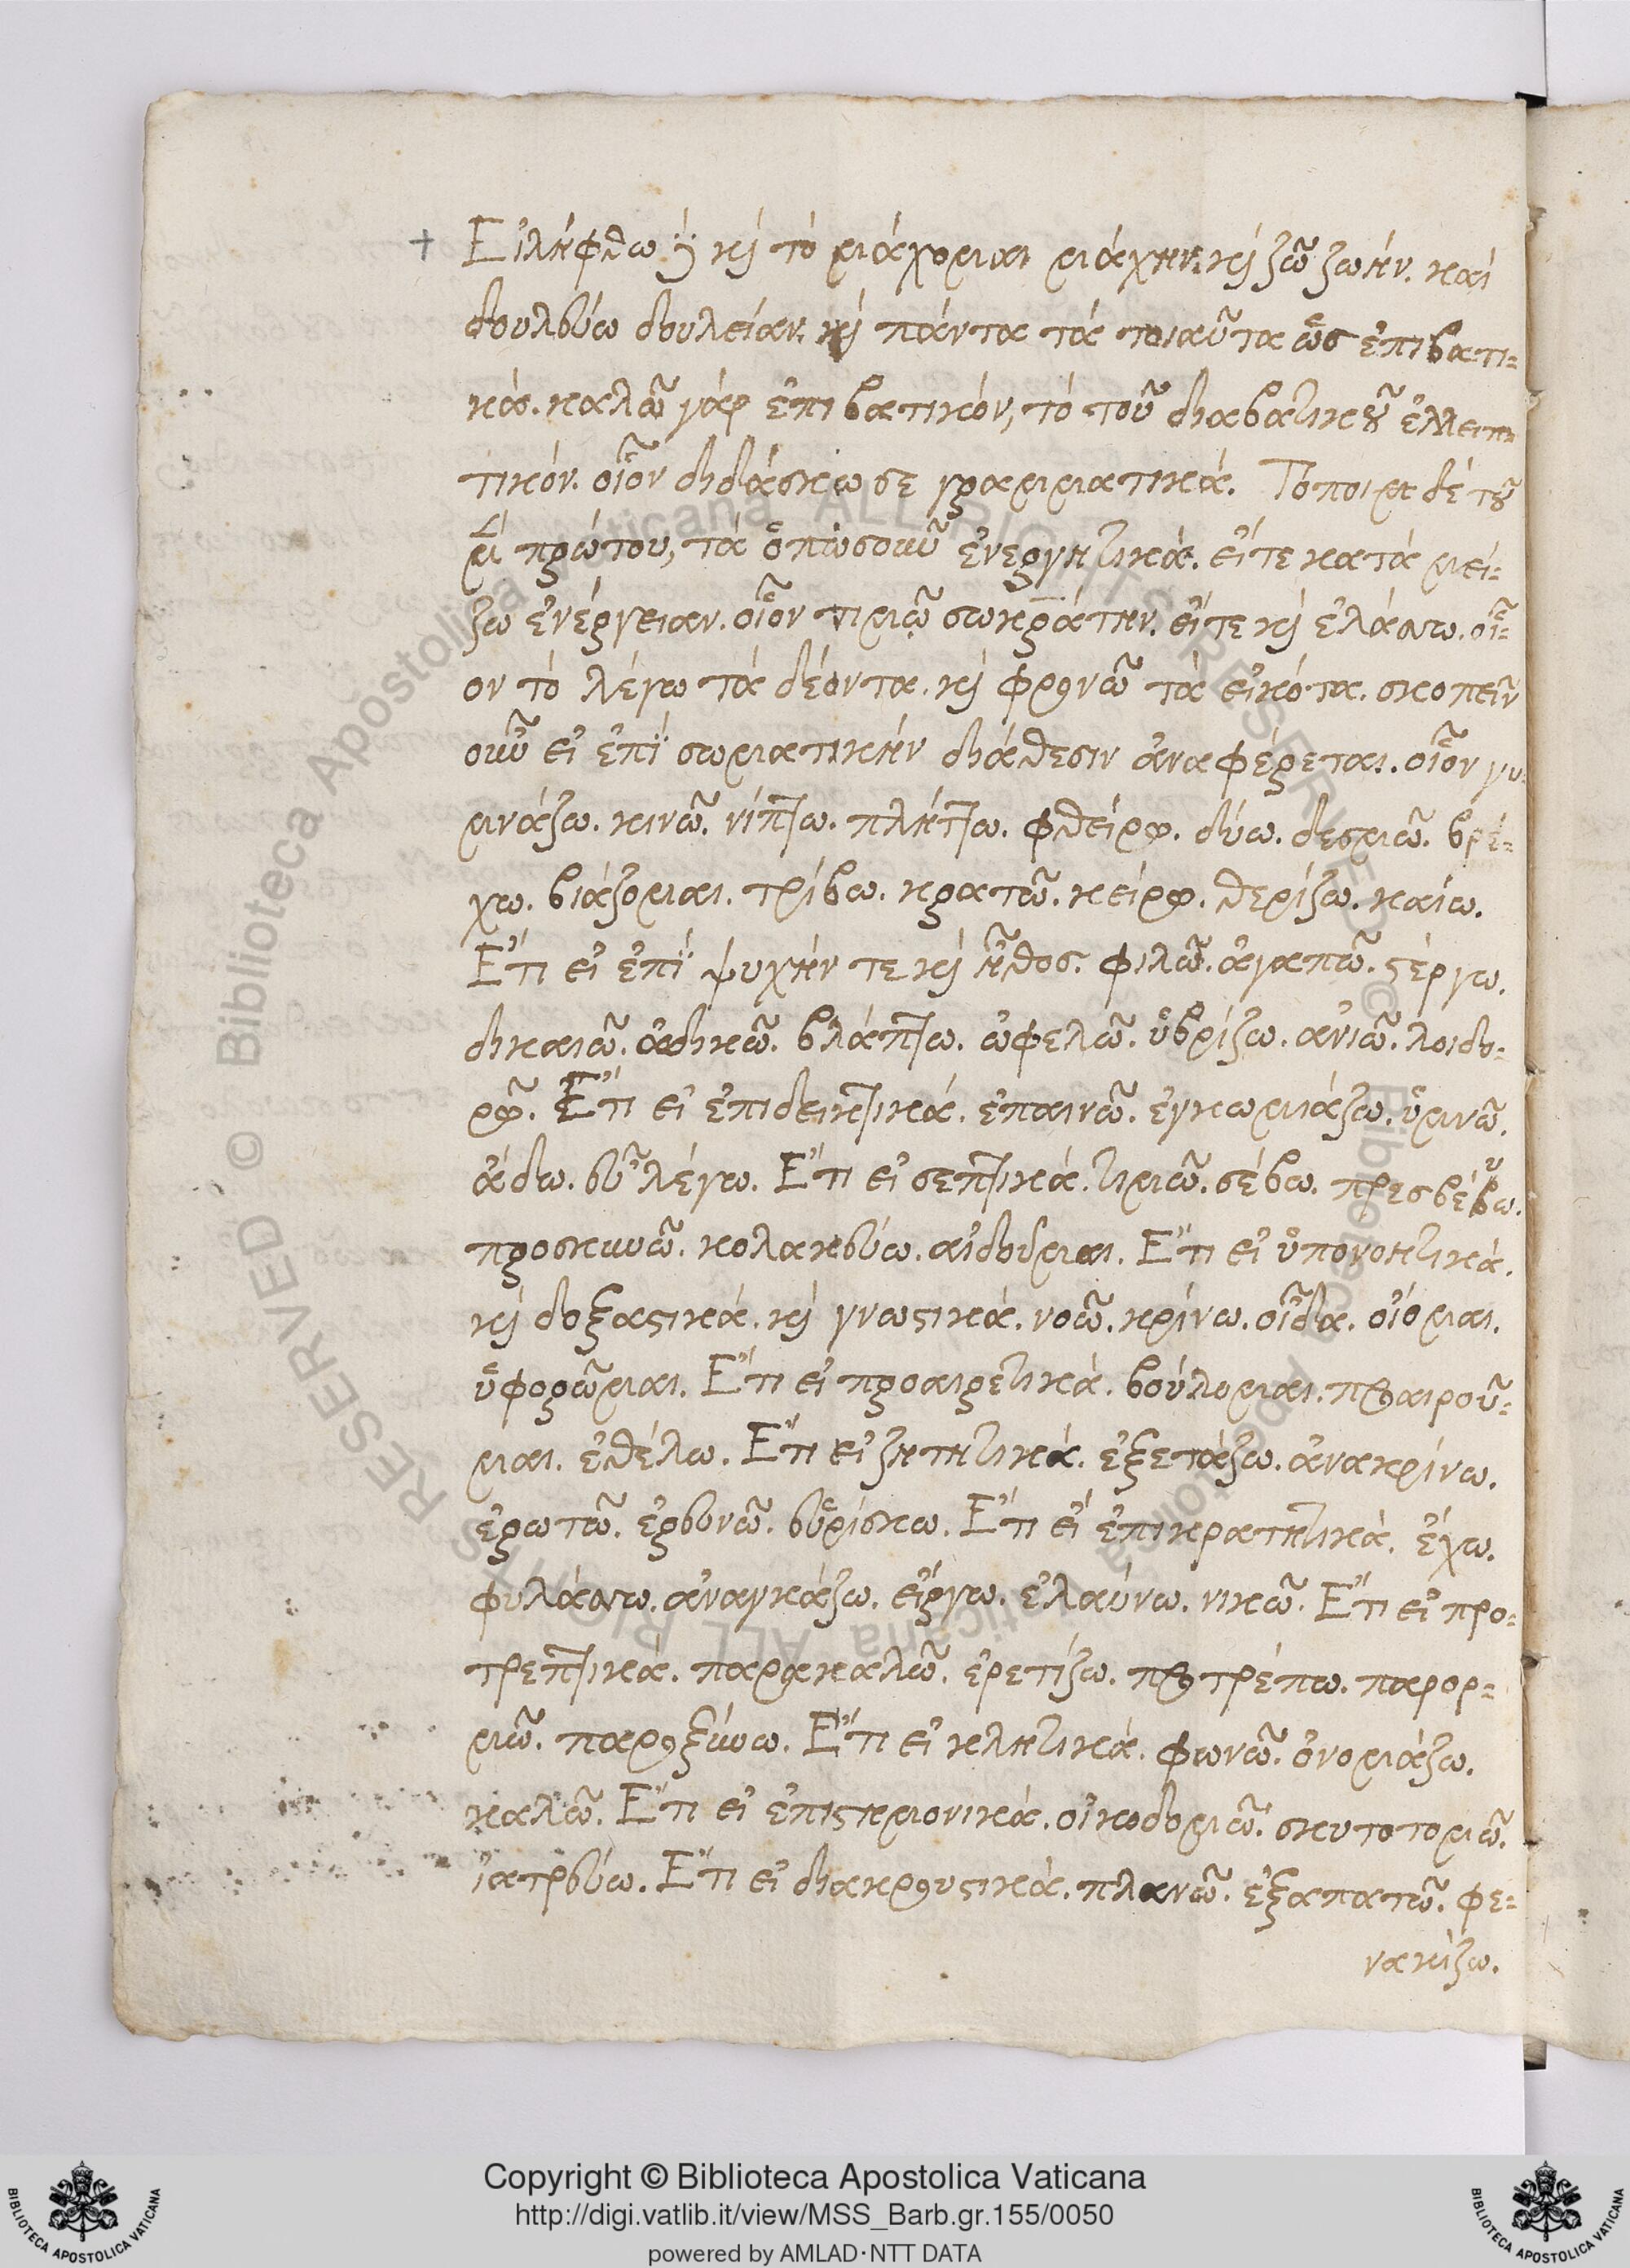 Εἰλήφθω δὲ καὶ τὸ μάχομαι μάχην. καὶ ζῶ ζωήν. καὶ
δουλεύω δουλείαν. καὶ πάντα τὰ τοιαῦτα ὡς ἐπιβατι-
κά. καλῶ γὰρ ἐπιβατικόν, τὸ τοῦ διαβατικοῦ ἐλλειπ
τικόν. οἷον διδάσκω σε γραμματικά. Τόποι δὲ τοῦ
μὲν πρώτου, τὰ ὁπωσοῦν ἐνεργητικά. εἴτε κατὰ μεί-
ζω ἐνέργειαν. οἷον τιμῶ σωκράτην. εἴτε καὶ ἐλάττω. οἷ-
ον τὸ λέγω τὰ δέοντα. καὶ φρονῶ τὰ εἰκότα. σκοπεῖν
οὖν εἰ ἐπὶ σωματικὴν διάθεσιν ἀναφέρεται. οἷον γυ-
μνάζω. κινῶ. νίπτω. πλήττω. φθείρω. δύω. δεσμῶ. βρέ-
χω. βιάζομαι. τρίβω. κρατῶ. κείρω. θερίζω. καίω.
Ἔτι εἰ ἐπὶ ψυχήν τε καὶ ἦθος. φιλῶ. ἀγαπῶ. στέργω.
δικαιῶ. ἀδικῶ. βλάπτω. ὠφελῶ. ὑβρίζω. ἀνιῶ. λοιδο-
ρῶ. Ἔτι εἰ ἐπιδεικτικά. ἐπαινῶ. ἐγκωμιάζω. ὑμνῶ.
ἄδω. εὖ λέγω. Ἔτι εἰ σεπτικά. τιμῶ. σέβω. πρεσβεύω.
προσκυνῶ. κολακεύω. αἰδοῦμαι. Ἔτι εἰ ὑπονοητικά.
καὶ δοξαστικά. καὶ γνωστικά. νοῶ. κρίνω. οἶδα. οἴομαι.
ὑφορῶμαι. Ἔτι εἰ προαιρετικά. βούλομαι. προαιροῦ-
μαι. ἐθέλω. Ἔτι εἰ ζητητικά. ἐξετάζω. ἀνακρίνω.
ἐρωτῶ. ἐρευνῶ. εὑρίσκω. Ἔτι εἰ ἐπικρατητικά. ἔχω.
φυλάττω. ἀναγκάζω. εἴργω. ἐλαύνω. νικῶ. Ἔτι εἰ προ-
τρεπτικά. παρακαλῶ. ἐρετίζω. προτρέπω. παρορ-
μῶ. παροξύνω. Ἔτι εἰ κλητικά. φωνῶ. ὀνομάζω.
καλῶ. Ἔτι εἰ ἐπιστημονικά. οἰκοδομῶ. σκυτοτομῶ.
ἰατρεύω. Ἔτι εἰ διακρουστικά. πλανῶ. ἐξαπατῶ. φε-
νακίζω.
Copyright © Biblioteca Apostolica Vaticana
http://digi.vatlib.it/view/MSS_Barb.gr.155/0050
powered by AMLAD·NTT DATA